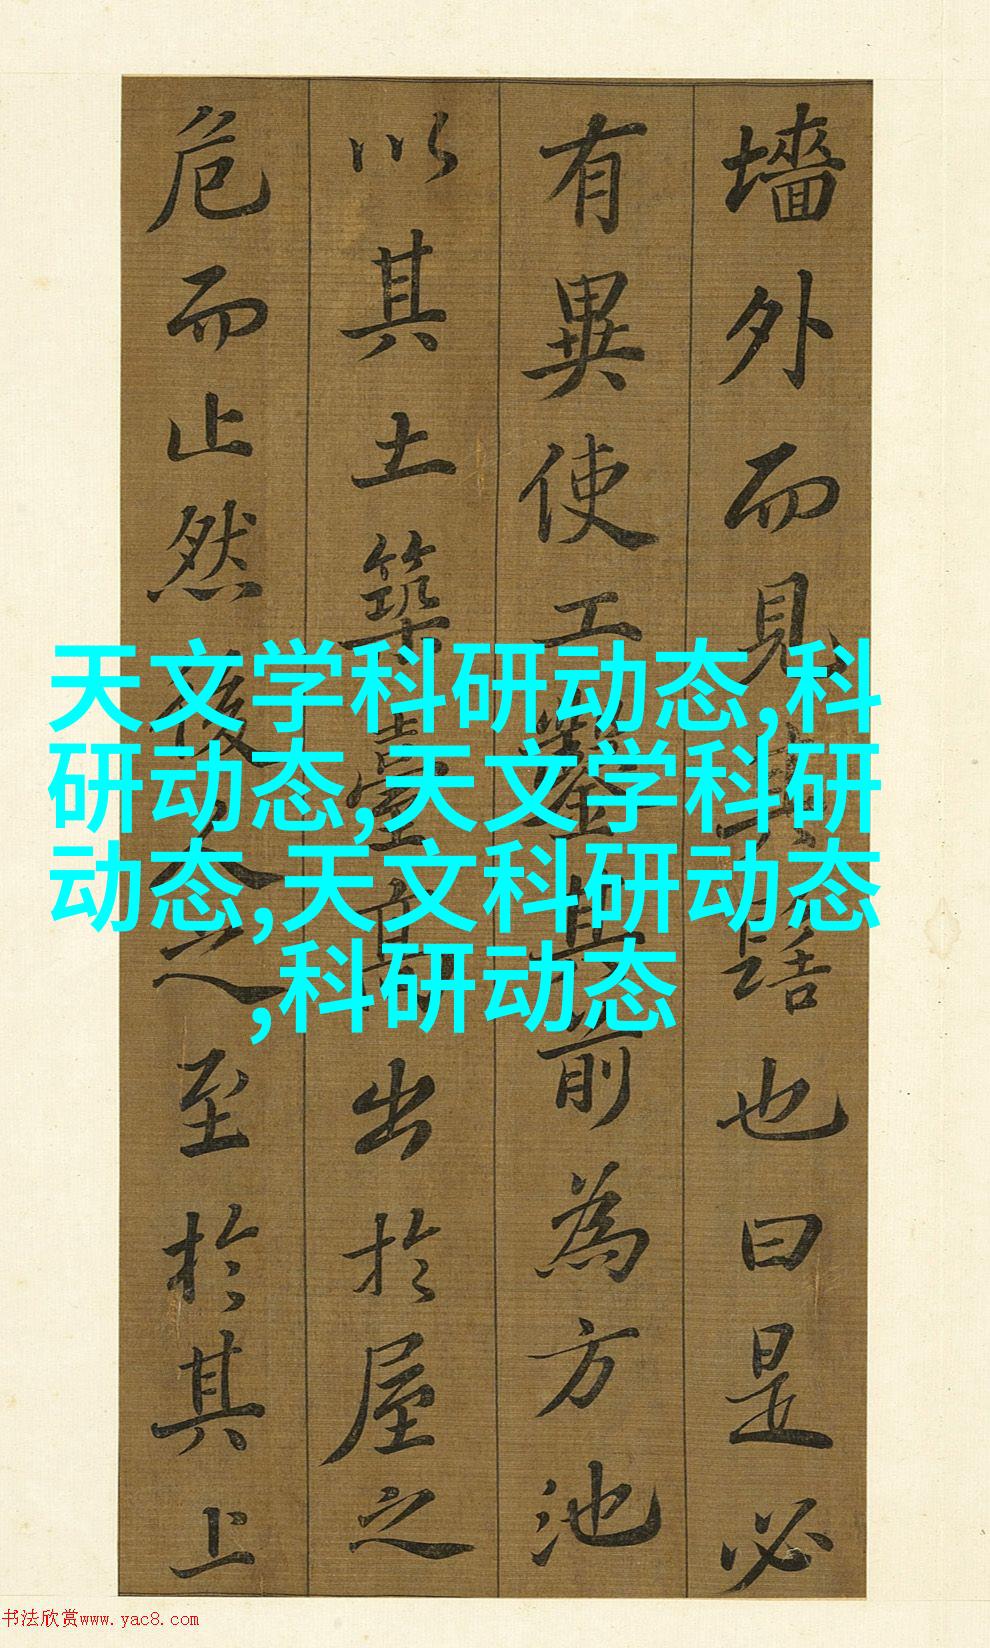 墻外而見其髻也曰是必
有異使工鑿其前為方池
以其土築臺高出於屋之
危而止然後人之至於其上
天文学科研动态,科
研动态,天文学科研
动态,天文科研动态
,科研动态
书法欣赏www.yac8.com